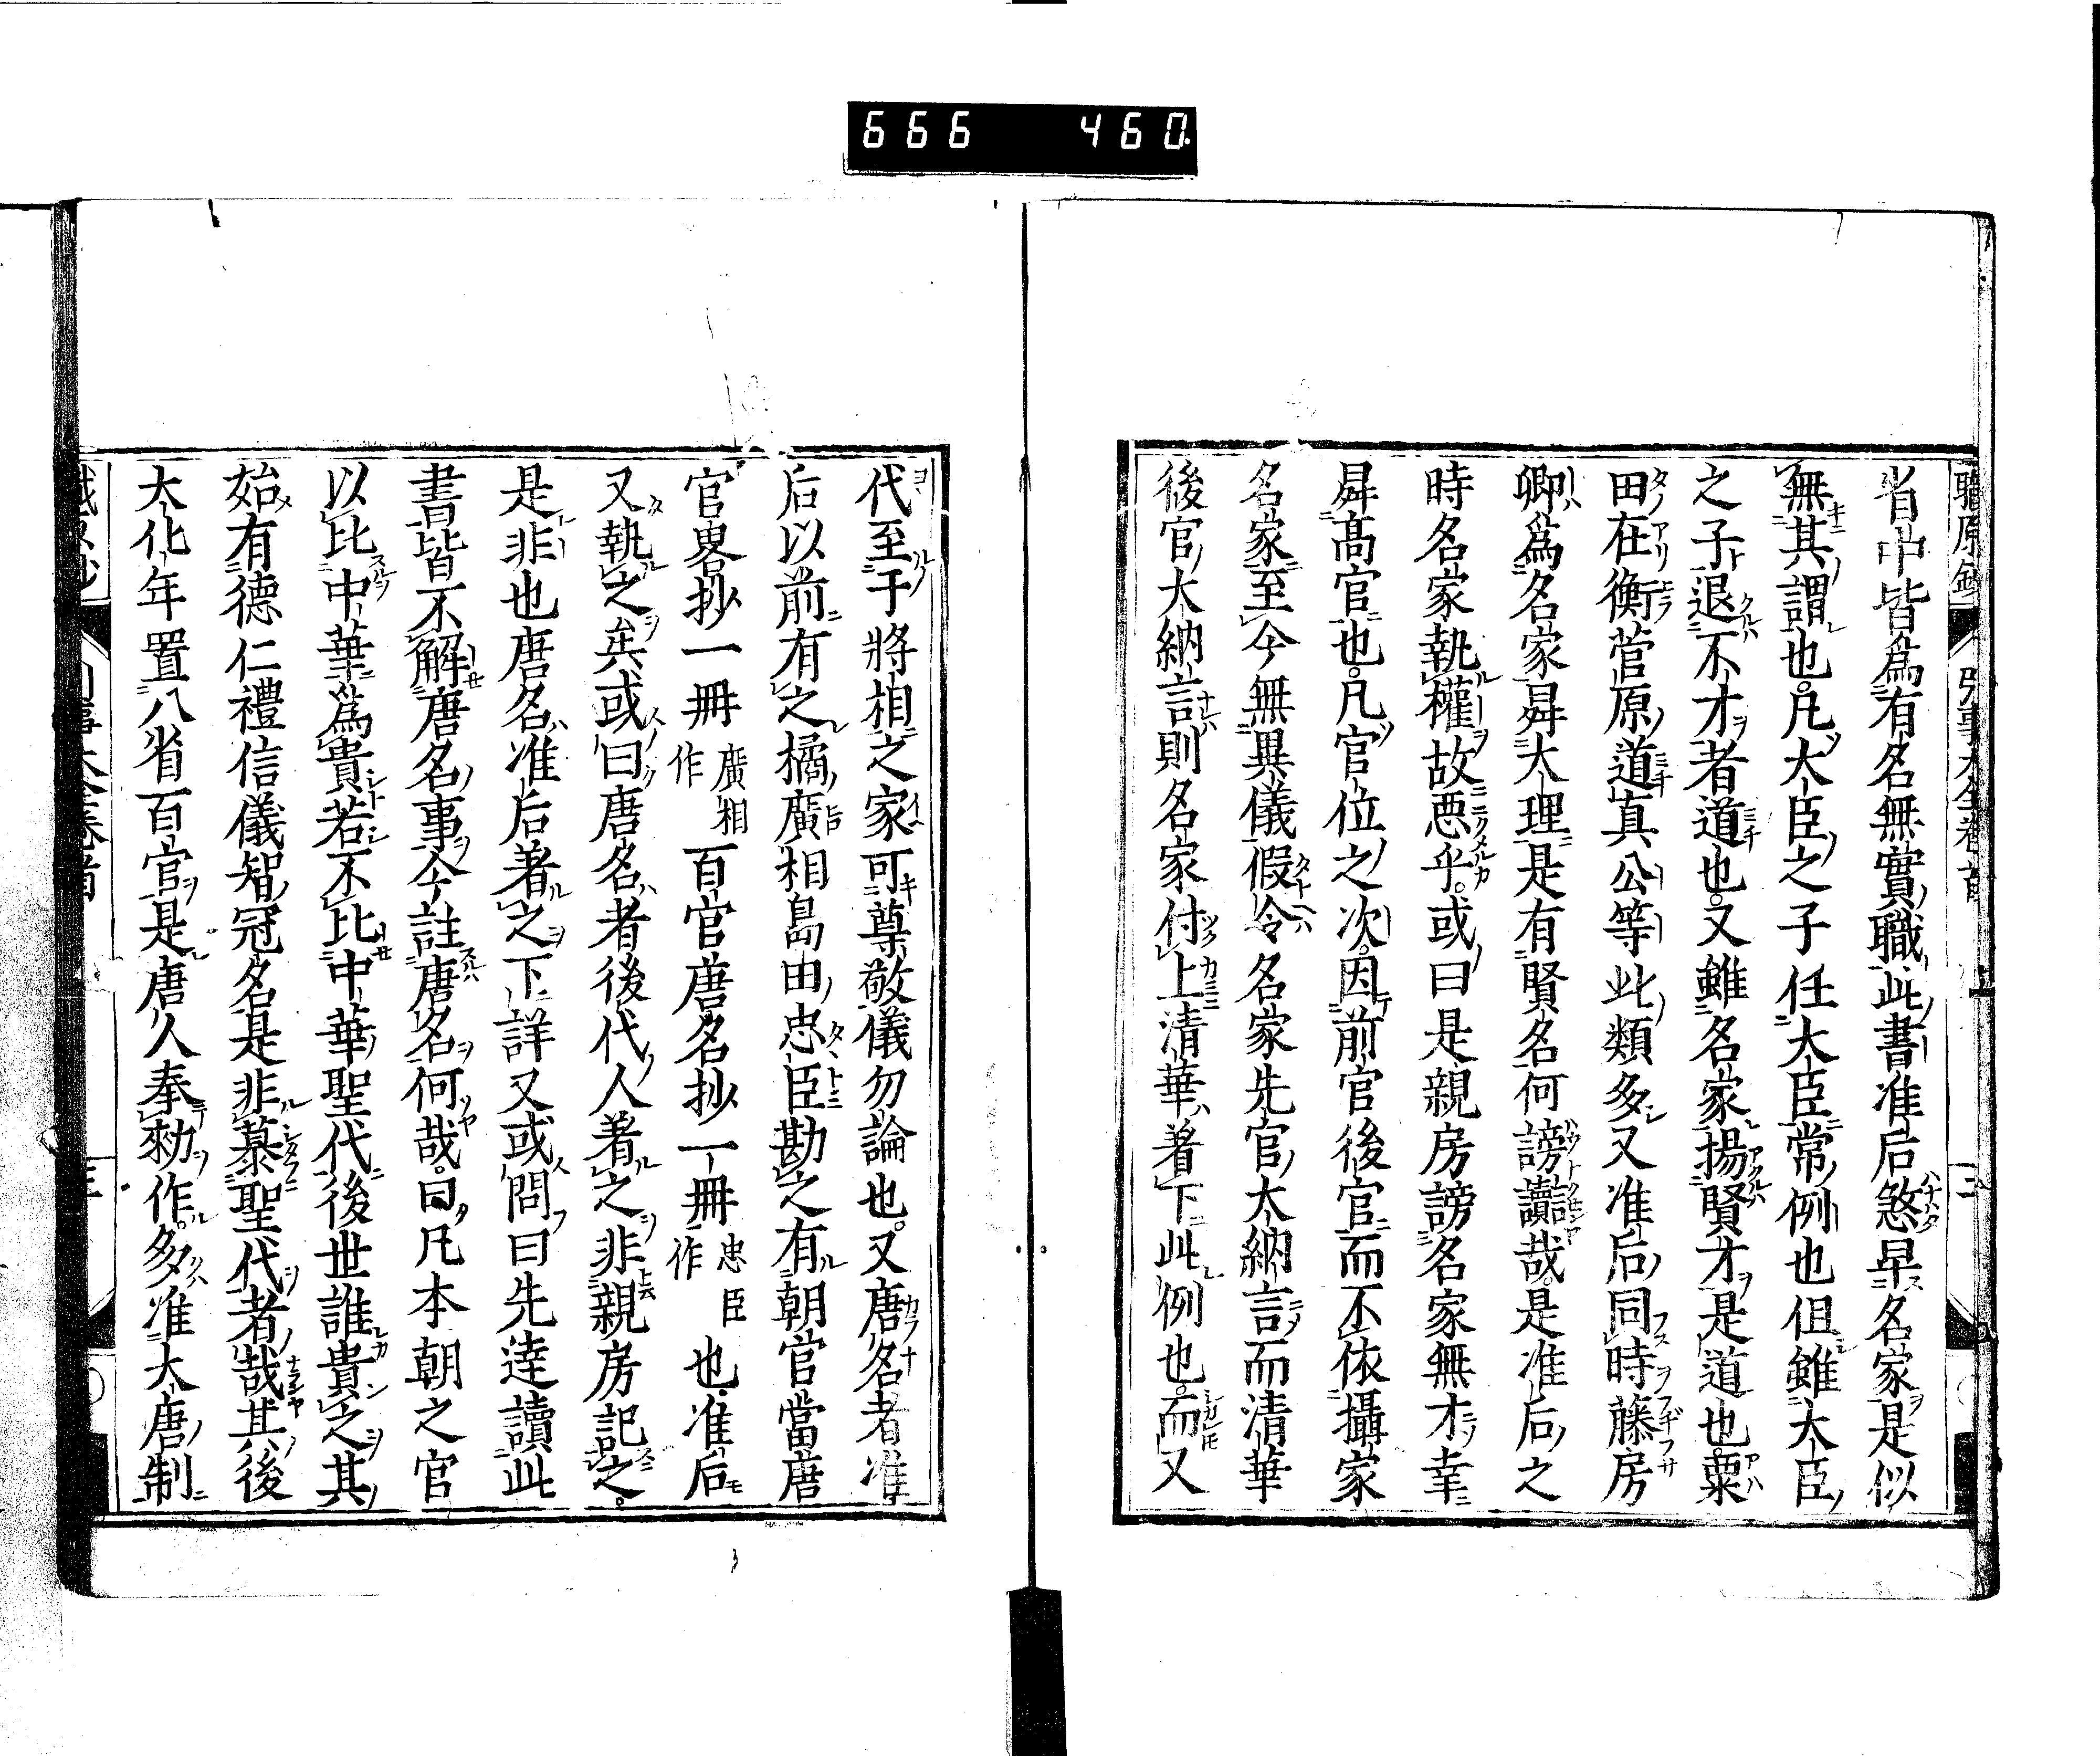 666 460
職原鈔
引事大全卷首
省中皆爲有名無實職此書准后煞早名家是似
無其謂也。凡大臣之子任大臣常例也但雖大臣
之子退不才者道也。又雖名家揚賢才是道也。粟
田在衡菅原道真公等此類多又准后同時藤房
卿爲名家昇大理是有賢名何謗讀哉。是准后之
時名家執權故悪乎。或曰是親房謗名家無才幸
昇髙官也。凡官位之次。因前官後官而不依攝家
名家至今無異儀假令名家先官大納言而清華
後官大納言則名家付上清華着下此例也。而又
代至于將相之家可尊敬儀勿論也。又唐名者准
后以前有之橘廣相島由忠臣勘之有朝官當唐
官畧抄一冊廣相作百官唐名抄一冊忠臣作也准后
又執之矣或曰唐名者後代人着之非親房記之。
是非也唐名准后著之下詳又或問曰先達讀此
書皆不解唐名事今註唐名何哉。曰凡本朝之官
以比中華爲貴若不比中華聖代後世誰貴之其
始有德仁禮信儀智冠名是非慕聖代者哉其後
大化年置八省百官是唐人奉勑作。多准大唐制